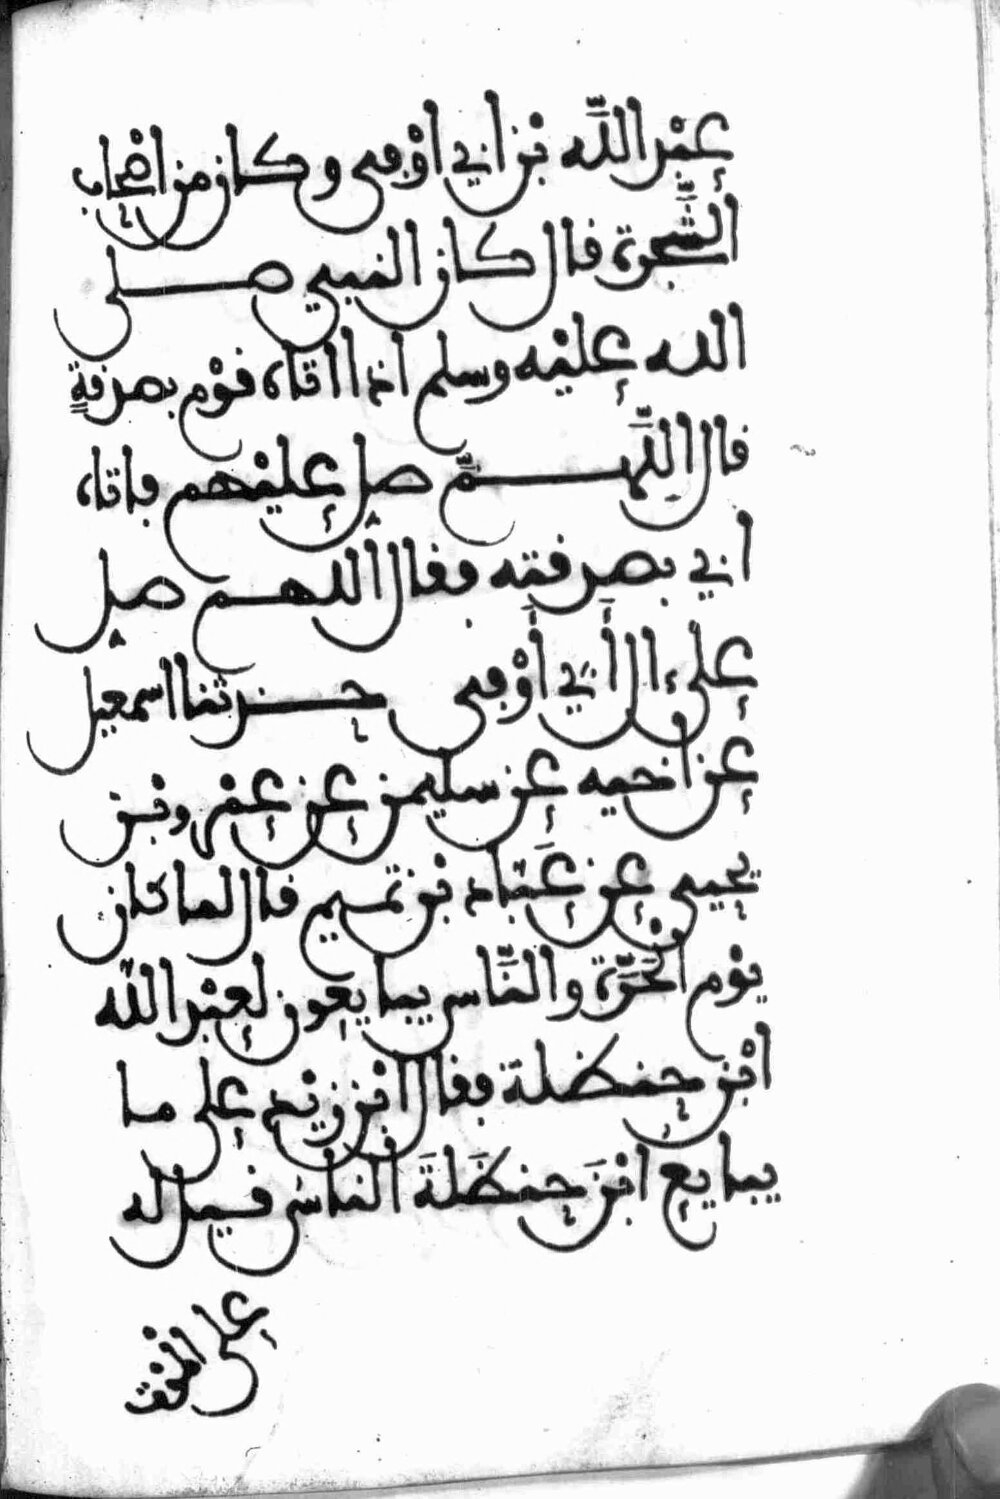 عبد الله بن ابي اوفى وكان من اصحاب
الشجرة قال كان النبي صلى
الله عليه وسلم اذا اتاه قوم بصدقة
قال اللهم صل عليهم فاتاه
ابي بصدقته فقال اللهم صل
على ءال أبي أوفى حدثنا اسمعيل
عن اخيه عن سليمن عن عمرو بن
يحيى عن عباد بن تميم قال لما كان
يوم الحرة والناس يبايعون لعبد الله
ابن حنظلة فقال ابن زيد على ما
يبايع ابن حنظلة الناس قيل له
على الموت